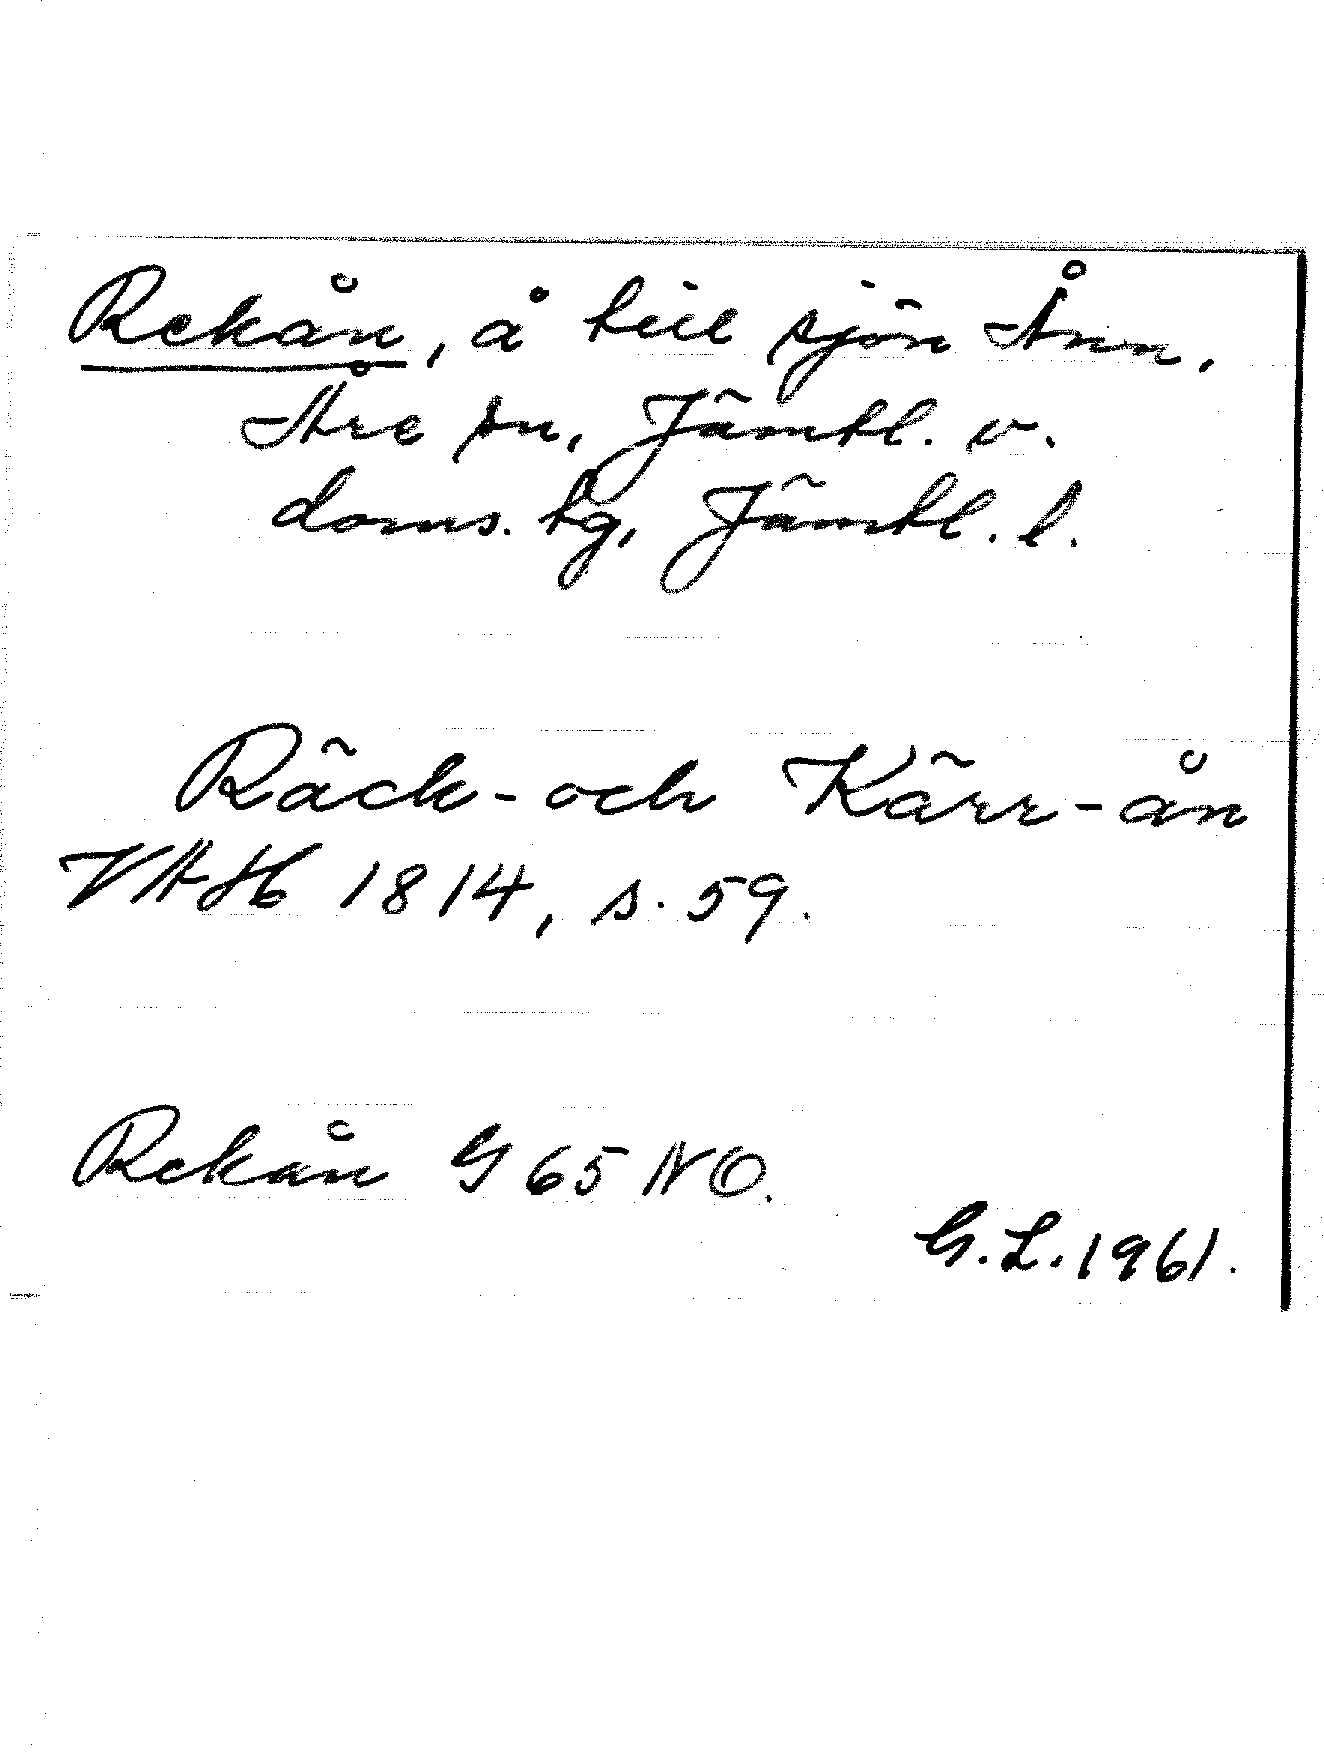 Rekån, å till sjön Ånn,
Åre sn, Jämtl. v.
doms. tg, Jämtl. l.
Räck- och Kärr-ån
VAH 1814, s. 59.
Rekån G 65 NO.
G. L. 1961.